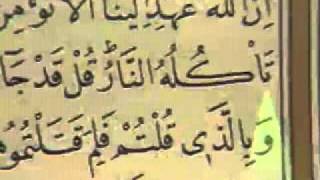 اِنَّ اللّٰهَ عَهِدَ اِلَيْنَا اَلَّا نُؤْمِ
تَأْكُلُهُ النَّارُ قُلْ قَدْ جَآ
وَبِالَّذٖى قُلْتُمْ فَلِمَ قَتَلْتُمُوهُ